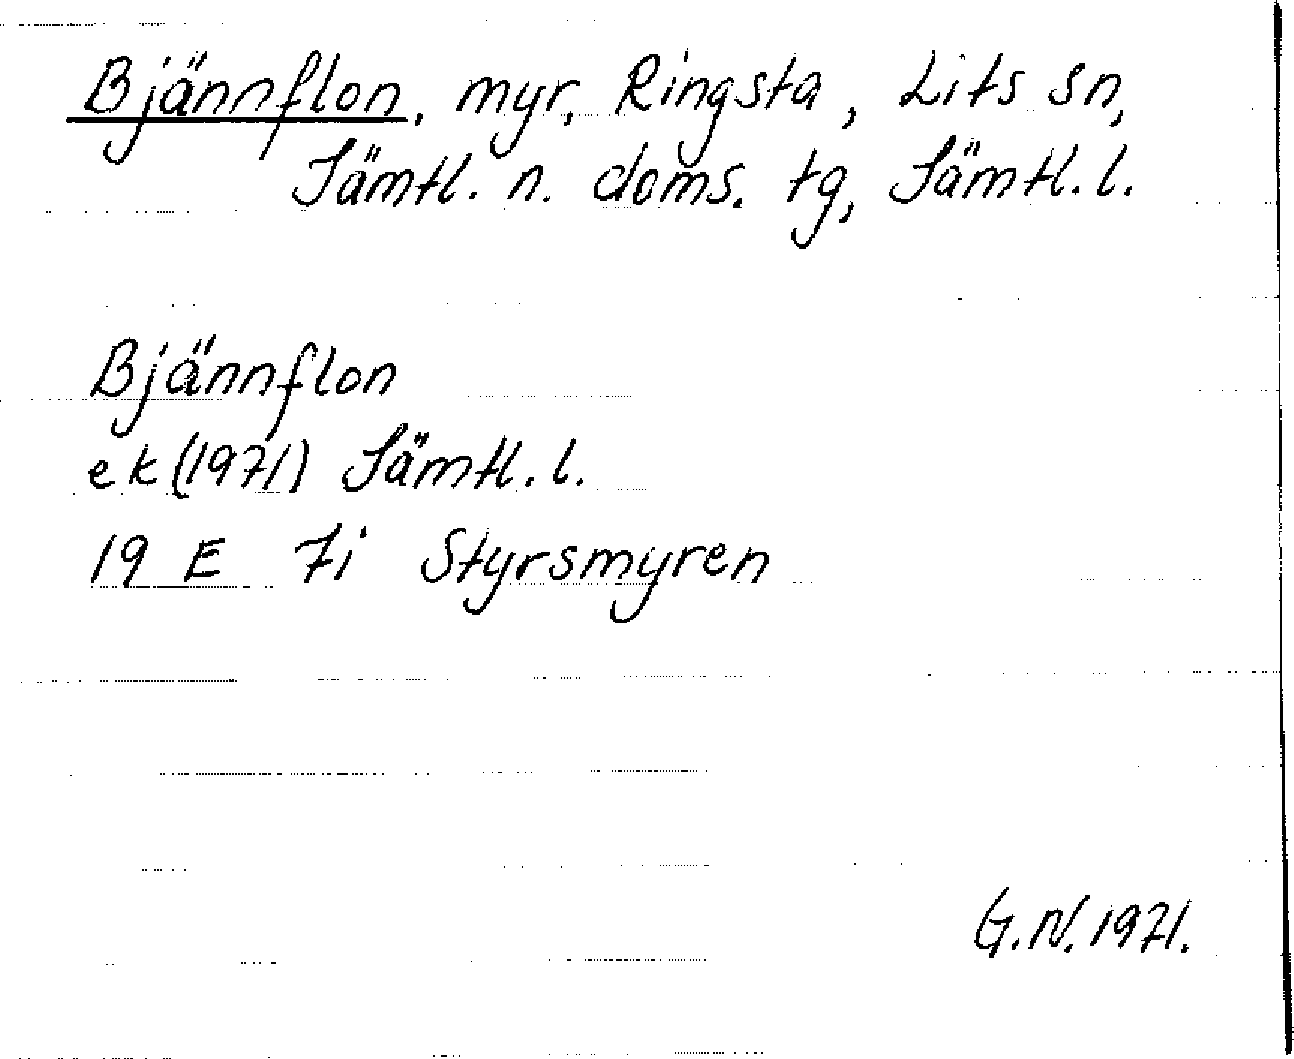 Bjännflon, myr, Ringsta, Lits sn,
Jämtl. n. doms. tg, Jämtl. l.
Bjännflon
ek (1971) Jämtl. l.
19 E 7i Styrsmyren
G.N. 1971.